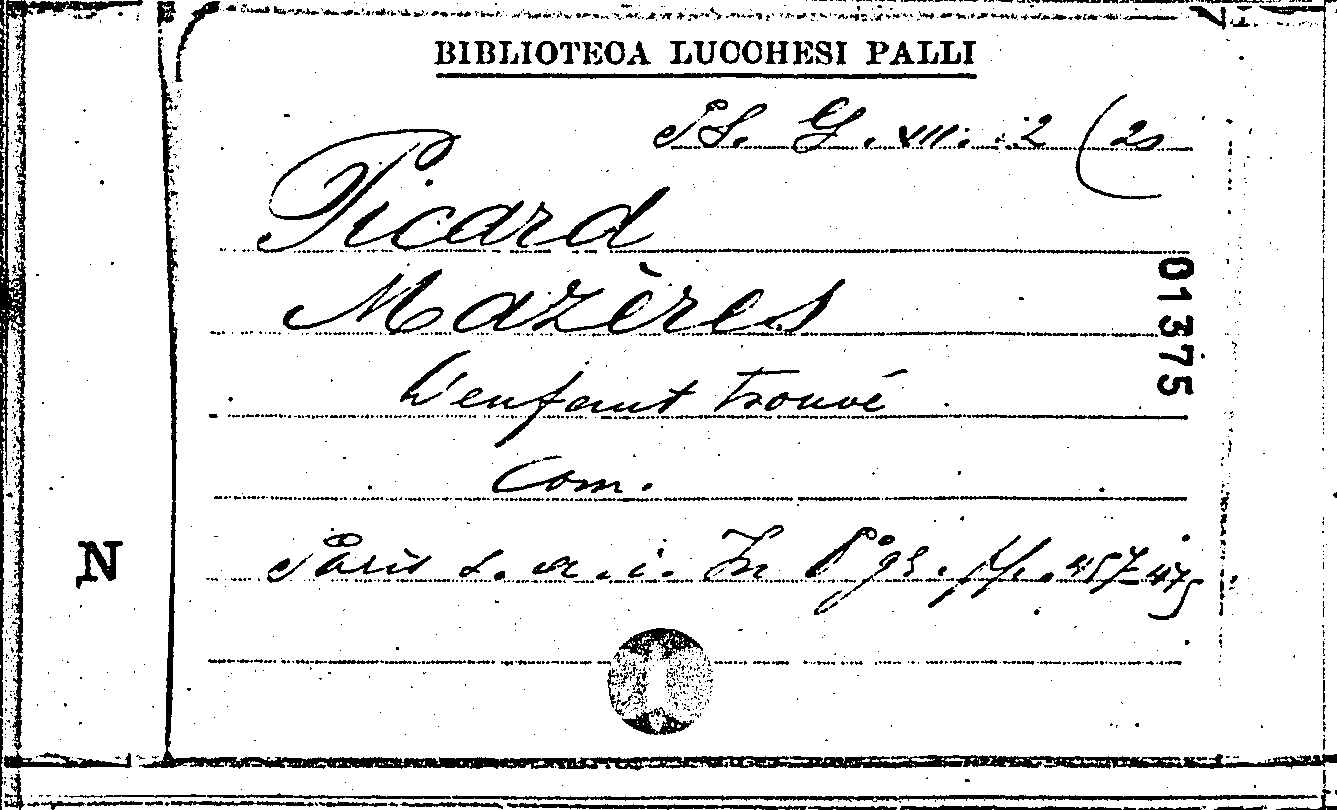 BIBLIOTECA LUCCHESI PALLI
P.S. G. XII. 2 (21
Picard
Mazères
L'enfant trouvé
Com.
01375
Paris s. a. i. In 8° gr. pp. 457-475
N